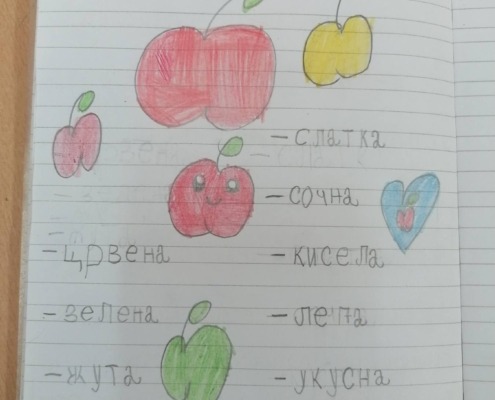 - слатка
- сочна
- црвена - кисела
- зелена - лепа
- жута - укусна